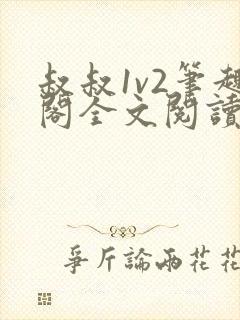 叔叔1v2筆趣
閣全文閱讀
爭斤論兩花花